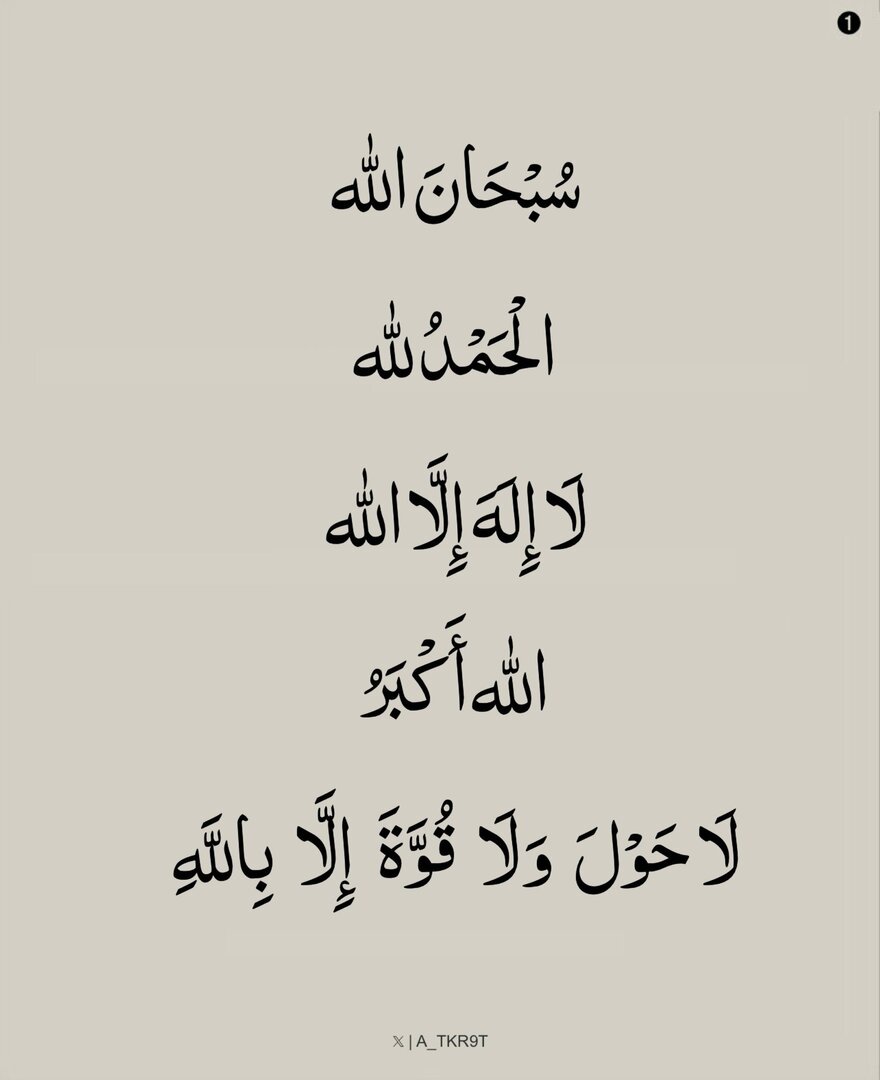 ❶
سُبْحَانَ الله
الْحَمْدُ لله
لَا إِلَهَ إِلَّا الله
الله أَكْبَرُ
لَا حَوْلَ وَلَا قُوَّةَ إِلَّا بِاللَّهِ
𝕏 | A_TKR9T